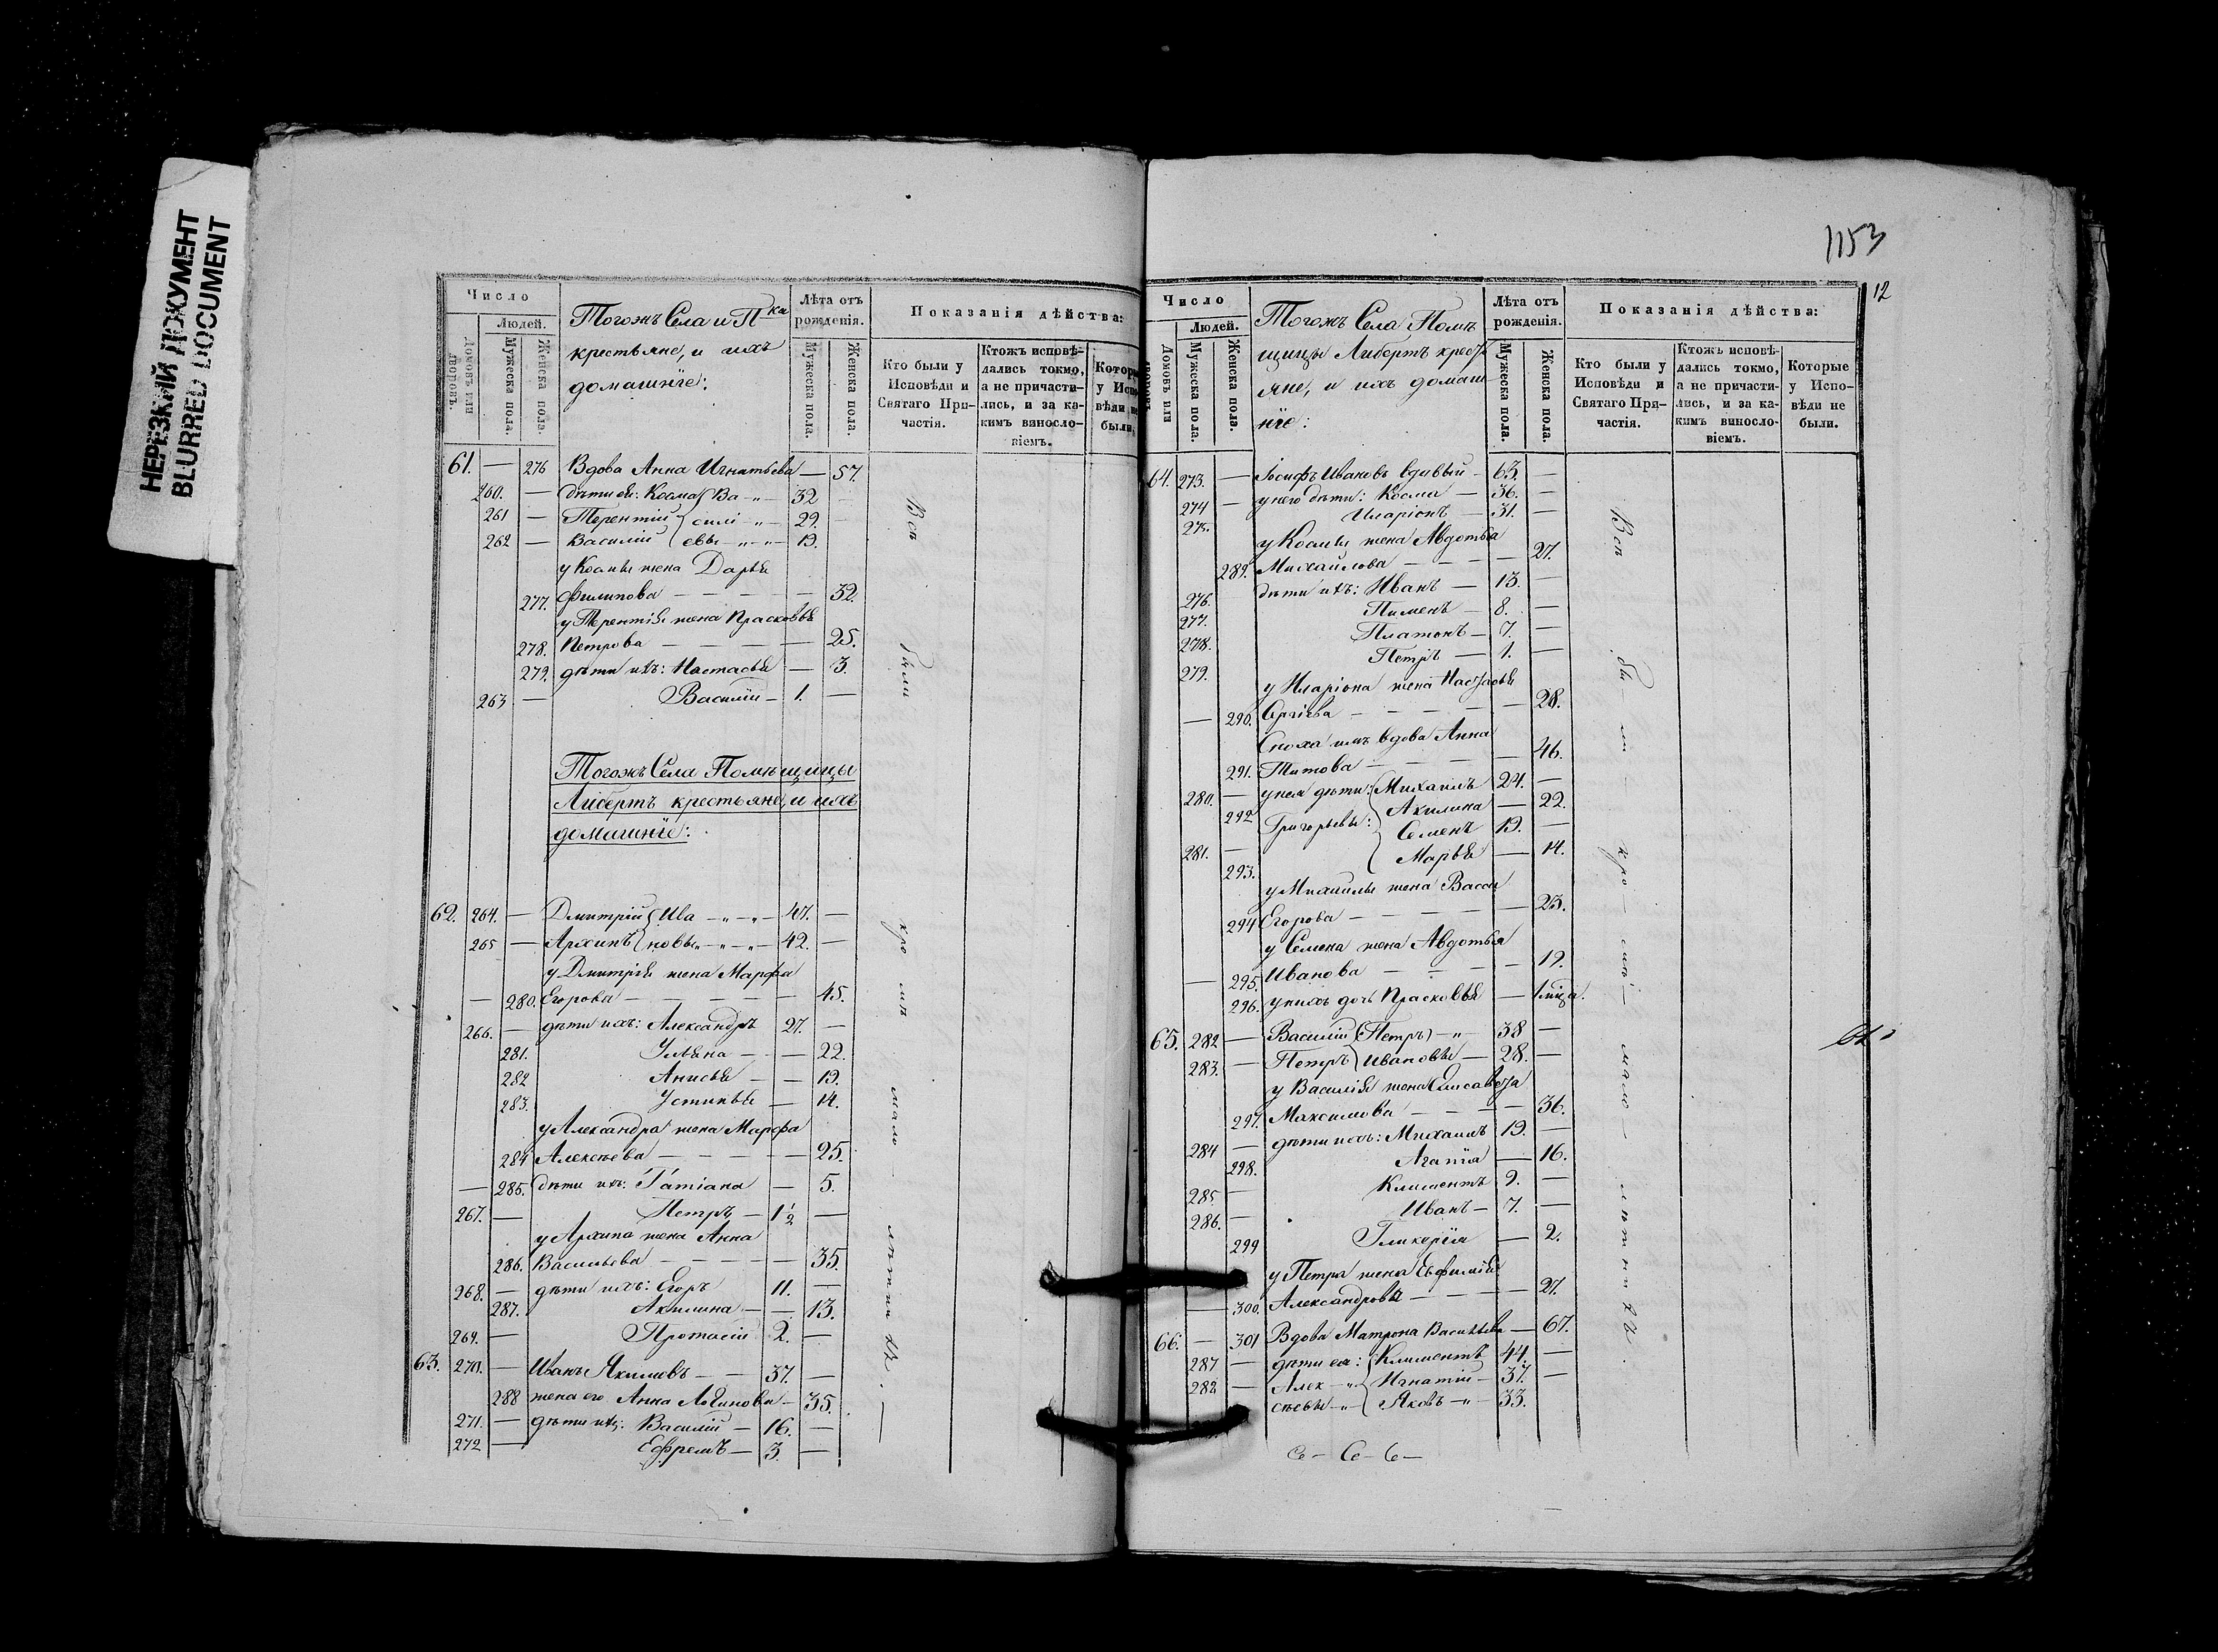 НЕРЕЗКИЙ ДОКУМЕНТ
BLURRED DOCUMENT
Число
Людей.
Домовъ или дворовъ.
Мужеска пола.
Женска пола.
Тогожъ Села и П-ка
крестьяне, и ихъ
домашнїе:
Лѣта отъ рожденія.
Мужеска пола.
Женска пола.
Показанія дѣйства:
Кто были у Исповѣди и Святаго Причастія.
Ктожъ исповѣдались токмо, а не причастились, и за какимъ винословіемъ.
61. — 276 Вдова Анна Игнатьева — 57.
260. — дѣти ея: Косма { Ва -„- 32 —
261 — Терентїй { силі -„- 29. —
262 — Василїй { евы -„-„- 19.
у Космы жена Дарья
277. Филипова — — — — 32.
у Терентїя жена Прасковья
278. Петрова — — — — 25.
279. дѣти ихъ: Настасья — 3.
263 — Василїй — 1. —
Тогожъ Села Помѣщицы
Либертъ крестьяне, и ихъ
домашнїе:
62. 264. — Дмитрїй { Ива -„-„- 47. —
265 — Архипъ { новы „-„-„- 42. —
у Дмитрїя жена Марфа
— 280. Егорова — — — — 45.
266. — дѣти ихъ: Александръ 27. —
281. Ульяна — — 22.
282 Анисья — — 19.
283. Устинья — 14.
у Александра жена Марфа
284 Алексѣева — — — — 25.
— 285. дѣти ихъ: Татіана — 5.
267. — Петръ — 1½ —
у Архипа жена Анна
286. Васильева — — — — 35.
268. — дѣти ихъ: Егоръ 11. —
287. Акилина — — 13.
269. — Протасїй 2. —
63. 270. — Иванъ Якимовъ — — 37. —
288 жена его Анна — 35.
271. — дѣти ихъ: Василїй — 16. —
272 — Ефремъ — 3. —
Всѣ были кромѣ малолѣтнихъ. —
1153
12
Число
Людей.
Домовъ или дворовъ.
Мужеска пола.
Женска пола.
Тогожъ Села Помѣ
щицы Либертъ кресть
яне, и ихъ домаш
нїе:
Лѣта отъ рожденія.
Мужеска пола.
Женска пола.
Показанія дѣйства:
Кто были у Исповѣди и Святаго Причастія.
Ктожъ исповѣдались токмо, а не причастились, и за какимъ винословіемъ.
Которые у Исповѣди не были.
64. 273. — Іосифъ Ивановъ вдовый — 63. —
274 — у него дѣти: Косма — 36. —
275. Иларіонъ — 31. —
у Космы жена Авдотья
289. Михайлова — — — 27.
276. дѣти ихъ: Иванъ — 13. —
277. Пименъ — 8. —
278. Платонъ — 7. —
279. Петръ — 1. —
у Иларіона жена Настасья
— 290. Сергіева — — — — 28.
Сноха имъ вдова Анна
291. Титова — — — — 46.
280. — у нея дѣти: { Михаилъ 24. —
292 Григорьевы: { Акилина — 22.
281. — { Семенъ 19. —
293. { Марья — 14.
у Михаилы жена Васса
294 Егорова — — — — 23.
у Семена жена Авдотья
— 295. Иванова — — — — 19.
296. у нихъ дочь Прасковья —
65. 282 — Василїй { Петръ) -„- 38 —
283. — Петръ { Ивановы — 28. —
у Василїя жена Елисавета
297. Максимова — — — — 36.
284 — дѣти ихъ: Михаилъ 19. —
298. Агапїя — 16.
285 — Климентъ 9. —
286. — Иванъ — 7. —
299 Гликерїя — 2.
у Петра жена Евфимїя
— 300. Александрова — — — 27.
66. — 301 Вдова Матрона Васильева — 67.
287 — дѣти ея: { Климентъ 44. —
282 — Алек -„- { Игнатїй — 37. —
сѣевы -„- { Яковъ -„- 33.
Всѣ были кромѣ малолѣтнихъ.